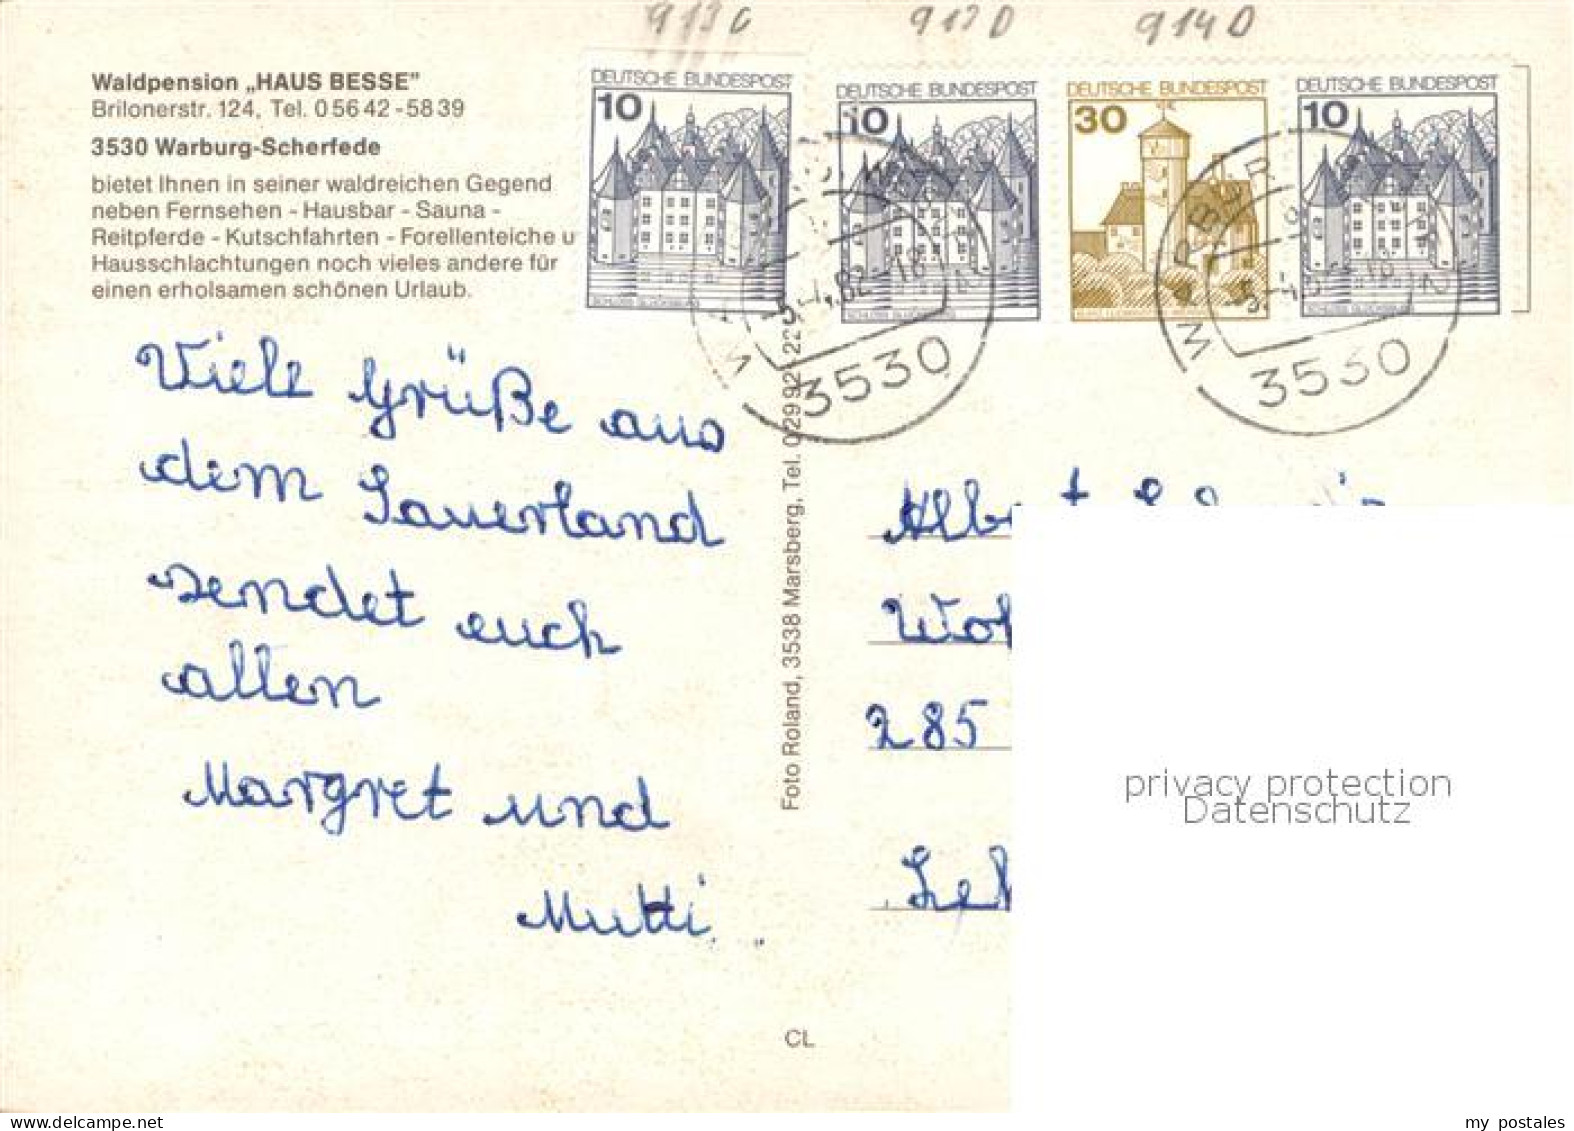 913 C
913 D
914 D
Waldpension „HAUS BESSE"
Brilonerstr. 124, Tel. 0 56 42 - 58 39
3530 Warburg-Scherfede
bietet Ihnen in seiner waldreichen Gegend
neben Fernsehen - Hausbar - Sauna -
Reitpferde - Kutschfahrten - Forellenteiche u
Hausschlachtungen noch vieles andere für
einen erholsamen schönen Urlaub.
DEUTSCHE BUNDESPOST
10
SCHLOSS GLÜCKSBURG
DEUTSCHE BUNDESPOST
10
SCHLOSS GLÜCKSBURG
DEUTSCHE BUNDESPOST
30
DEUTSCHE BUNDESPOST
10
SCHLOSS GLÜCKSBURG
3530
WARBURG
3530
Viele Grüße aus
dem Sauerland
sendet euch
allen
Margret und
Mutti
Foto Roland, 3538 Marsberg, Tel. 0 29 92 - 22
285
privacy protection
Datenschutz
CL
my postales